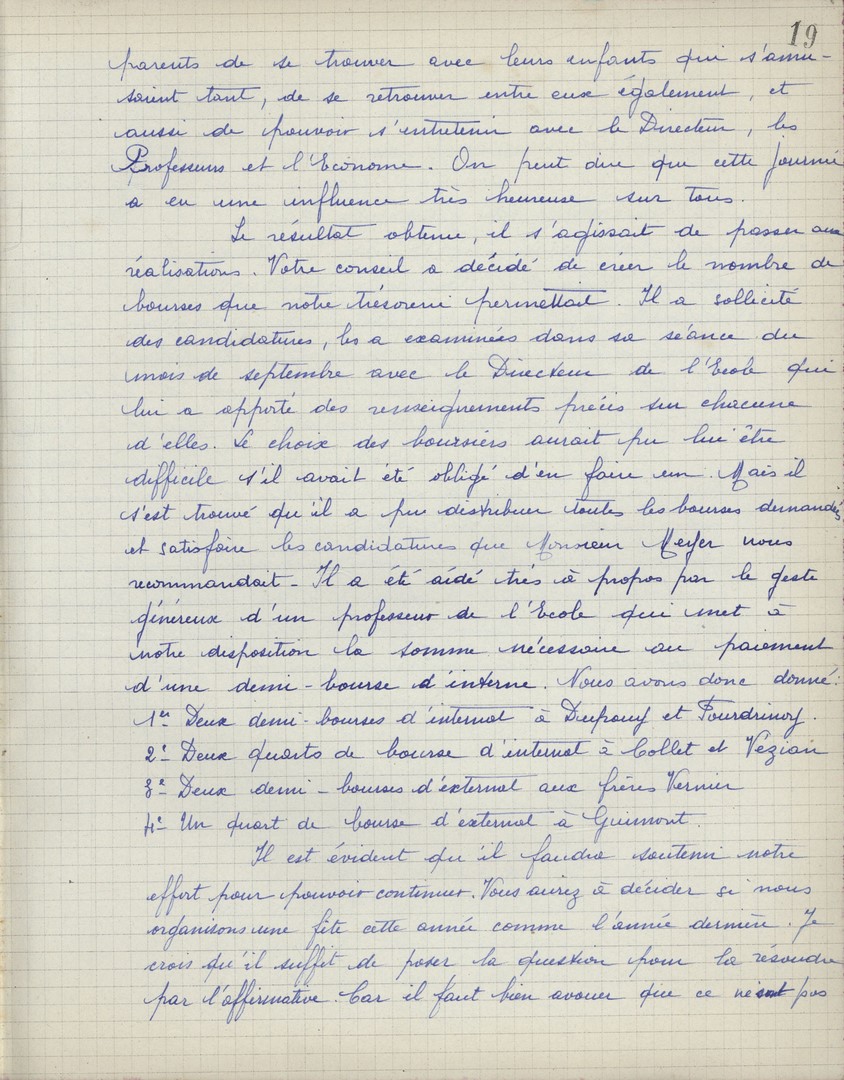 19
parents de se trouver avec leurs enfants qui s'amu-
saient tant, de se retrouver entre eux également, et
aussi de pouvoir s'entretenir avec le Directeur, les
Professeurs et l'Econome. On peut dire que cette journée
a eu une influence très heureuse sur tous.
Le résultat obtenu, il s'agissait de passer aux
réalisations. Votre conseil a décidé de créer le nombre de
bourses que notre trésorerie permettait. Il a sollicité
des candidatures, les a examinées dans sa séance du
mois de septembre avec le Directeur de l'Ecole qui
lui a apporté des renseignements précis sur chacune
d'elles. Le choix des boursiers aurait pu lui être
difficile s'il avait été obligé d'en faire un. Mais il
s'est trouvé qu'il a pu distribuer toutes les bourses demandées
et satisfaire les candidatures que Monsieur Meyer nous
recommandait. Il a été aidé très à propos par le geste
généreux d'un professeur de l'Ecole qui met à
notre disposition la somme nécessaire au paiement
d'une demi-bourse d'interne. Nous avons donc donné :
1er Deux demi-bourses d'internat à Dupouy et Pourdrinoy.
2e - Deux quarts de bourse d'internat à Collet et Vézian
3e - Deux demi-bourses d'externat aux frères Vernier
4e - Un quart de bourse d'externat à Guimont.
Il est évident qu'il faudra soutenir notre
effort pour pouvoir continuer. Vous aurez à décider si nous
organisons une fête cette année comme l'année dernière. Je
crois qu'il suffit de poser la question pour la résoudre
par l'affirmative. Car il faut bien avouer que ce ne sont pas